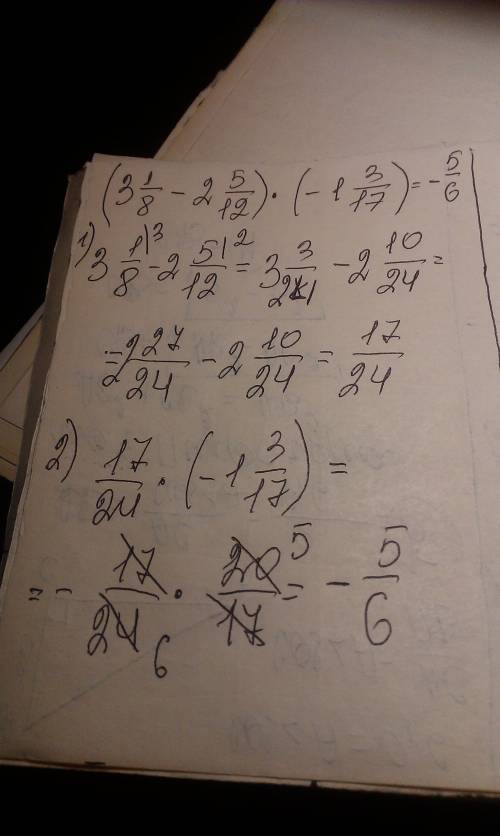 (3 1/8 - 2 5/12) · (-1 3/17) = - 5/6
1) 3 1/8 |3 - 2 5/12 |2 = 3 3/24 - 2 10/24 =
= 2 27/24 - 2 10/24 = 17/24
2) 17/24 · (-1 3/17) =
= - 17/24 6 · 20/17 5 = - 5/6